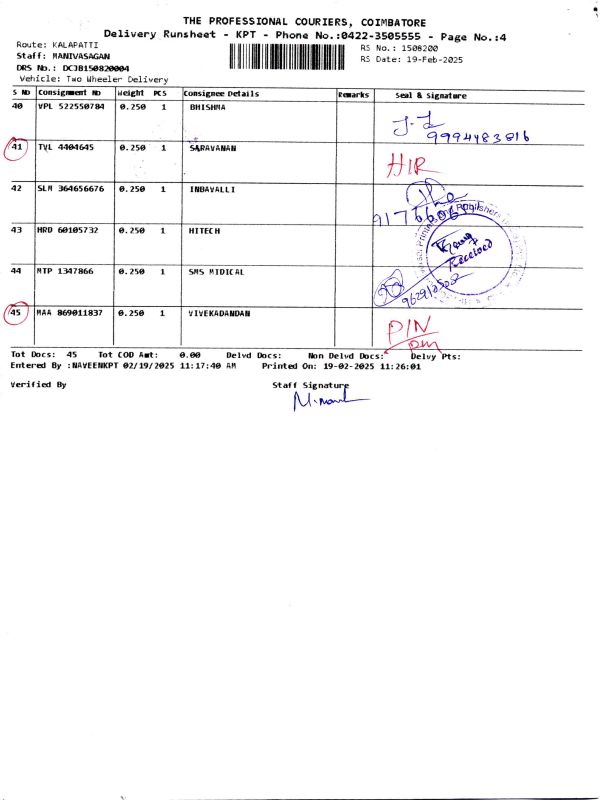 THE PROFESSIONAL COURIERS, COIMBATORE
Delivery Runsheet - KPT - Phone No.:0422-3505555 - Page No.:4
Route: KALAPATTI
Staff: MANIVASAGAN
DRS No.: DCJB150820004
Vehicle: Two Wheeler Delivery
RS No.: 1508200
RS Date: 19-Feb-2025
S No Consignment No Weight PCS Consignee Details Remarks Seal & Signature
40 VPL 522550784 0.250 1 BHISHMA
9994483816
41 TVL 4404645 0.250 1 SARAVANAN HIR
42 SLM 364656676 0.250 1 INBAVALLI
43 HRD 60105732 0.250 1 HITECH
Received
44 MTP 1347866 0.250 1 SMS MIDICAL
45 MAA 869011837 0.250 1 VIVEKADANDAN PIN
Tot Docs: 45 Tot COD Amt: 0.00 Delvd Docs: Non Delvd Docs: Delvy Pts:
Entered By :NAVEENKPT 02/19/2025 11:17:40 AM Printed On: 19-02-2025 11:26:01
Verified By Staff Signature